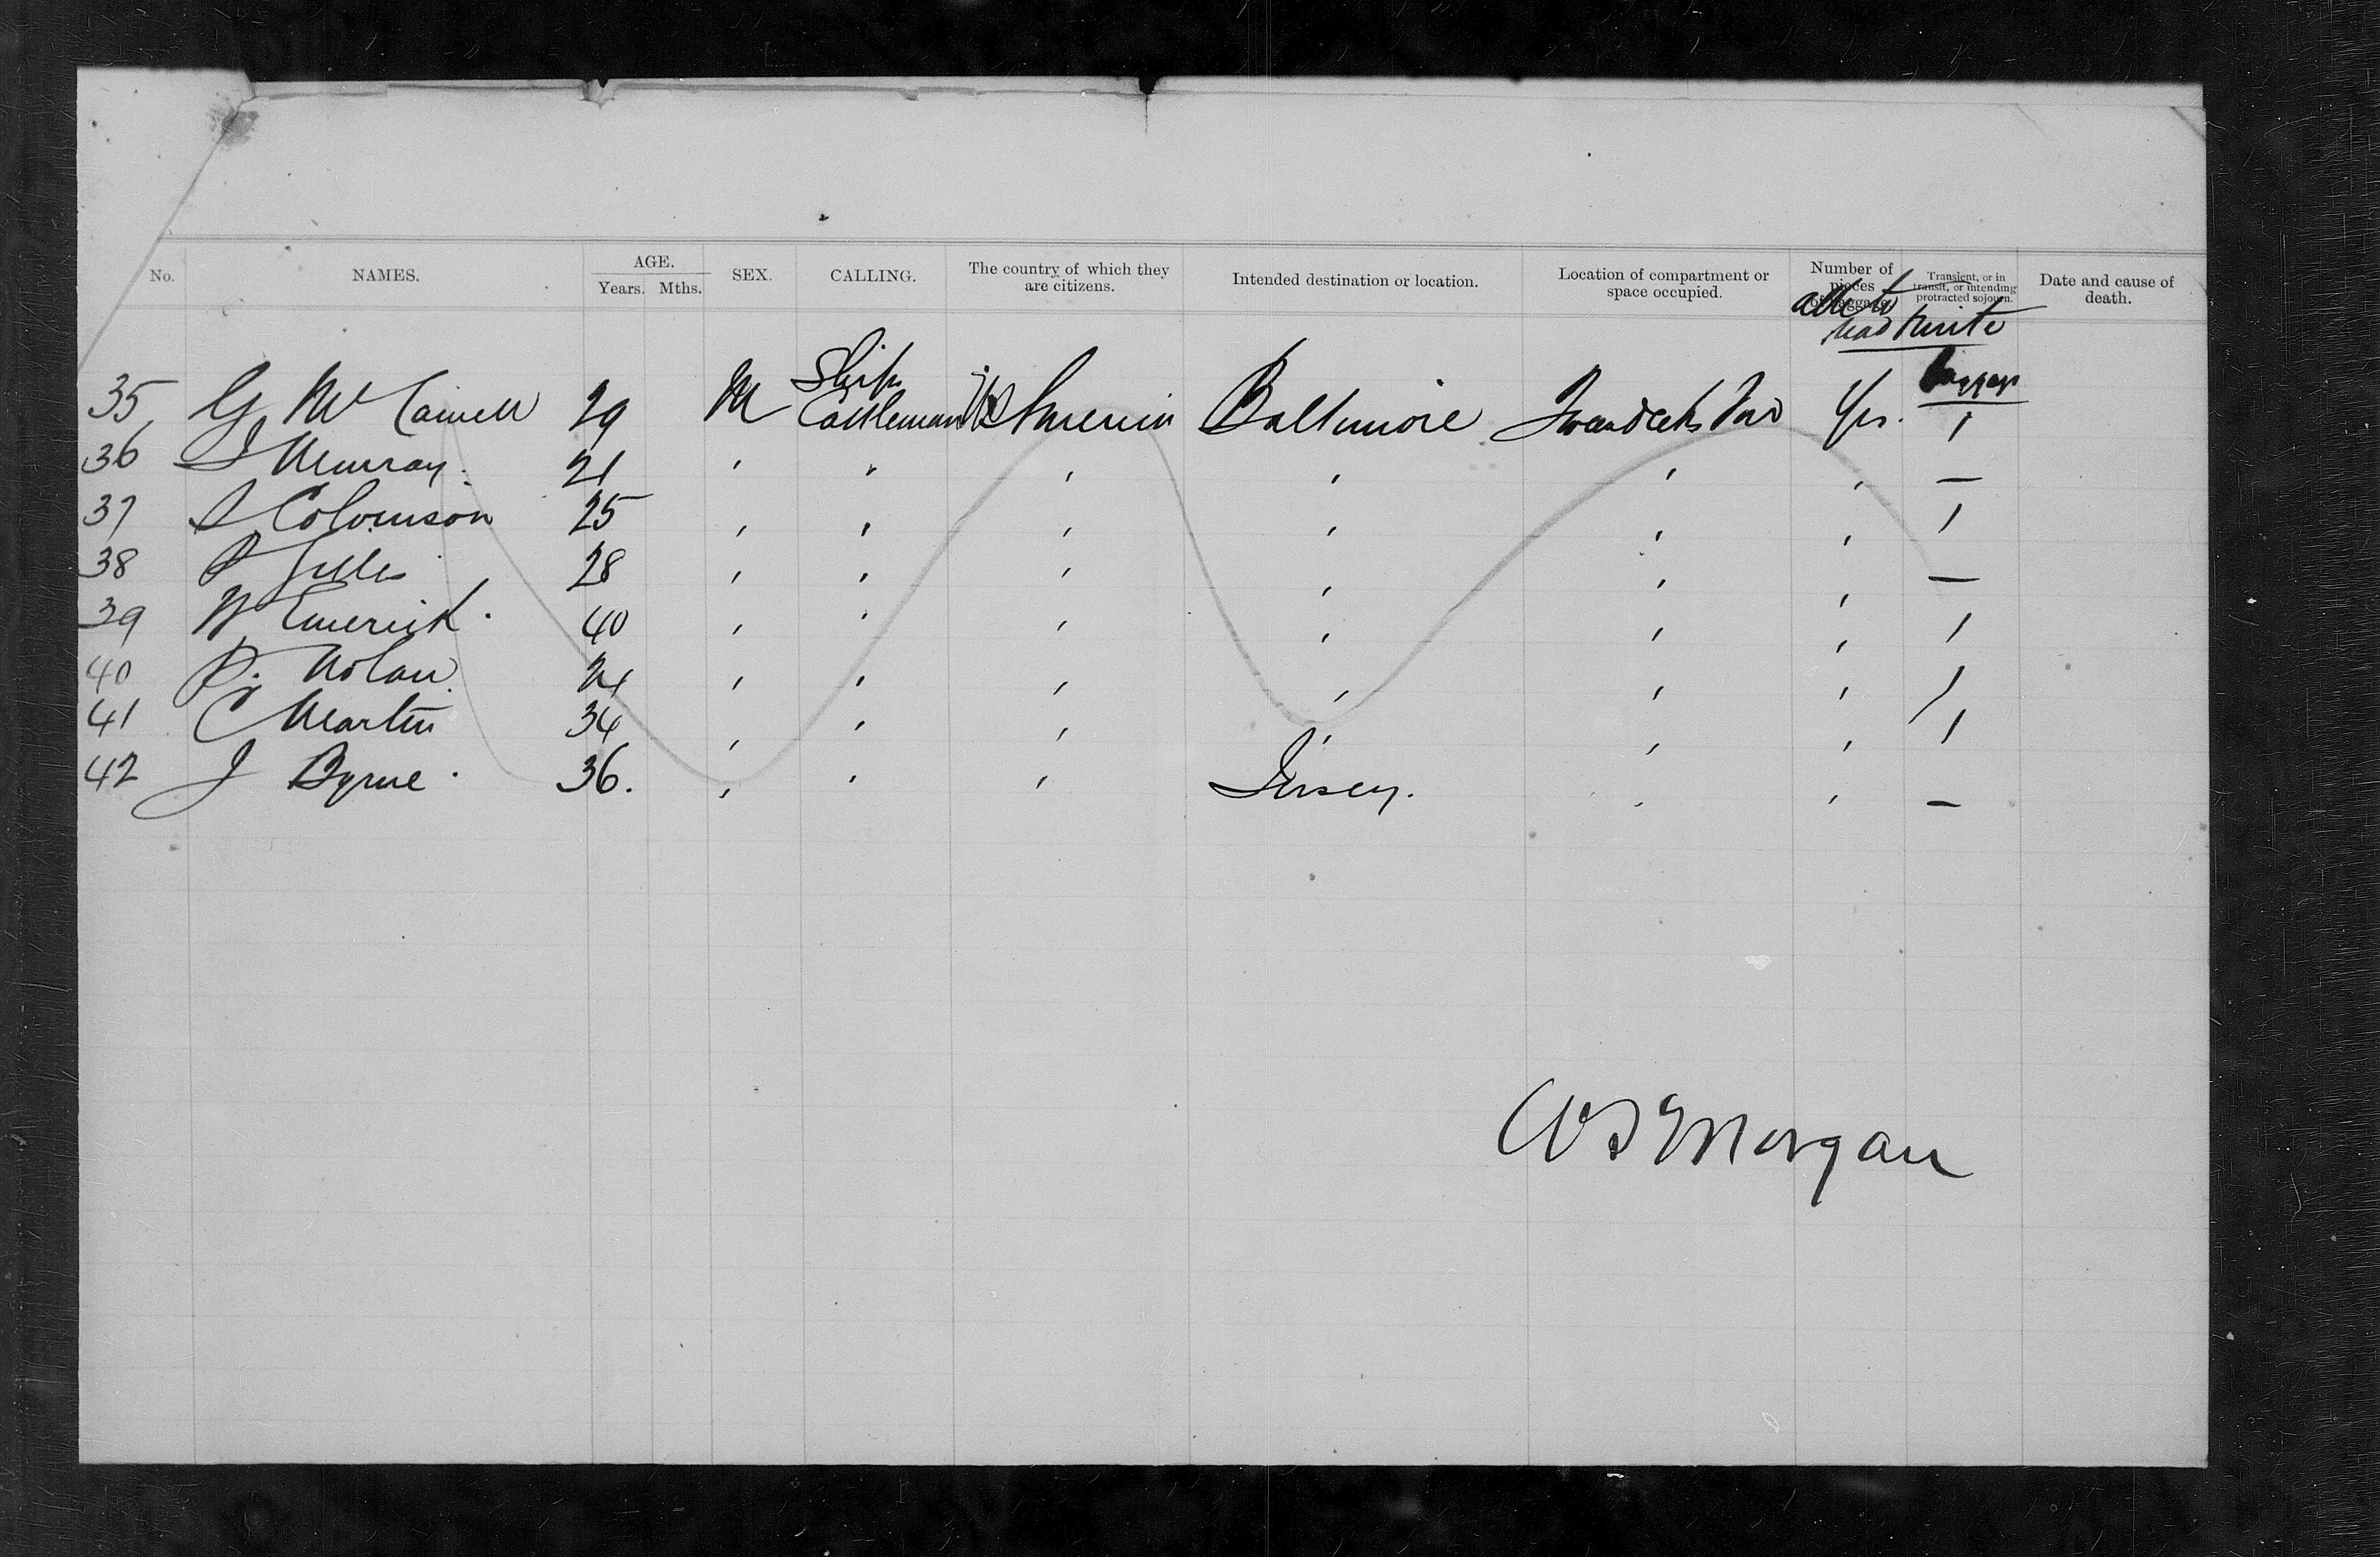 No. NAMES. AGE. SEX. CALLING. The country of which they are citizens. Intended destination or location. Location of compartment or space occupied. Number of pieces of baggage. Transient, or in transit, or intending protracted sojourn. Date and cause of death.
Years. Mths.
able to
read write
Ship baggage
35 G Mc 29 M Cattleman Baltimore Yes. 1
36 J Murray. 21 " " " " " " —
37 S 25 " " " " " " 1
38 P Gilles 28 " " " " " " —
39 W Emerick. 40 " " " " " " 1
40 P. Nolan. " " " " " " 1
41 C Martin 34 " " " " " " 1
42 J Byrne. 36. " " " Jersey. " " —
W S Morgan